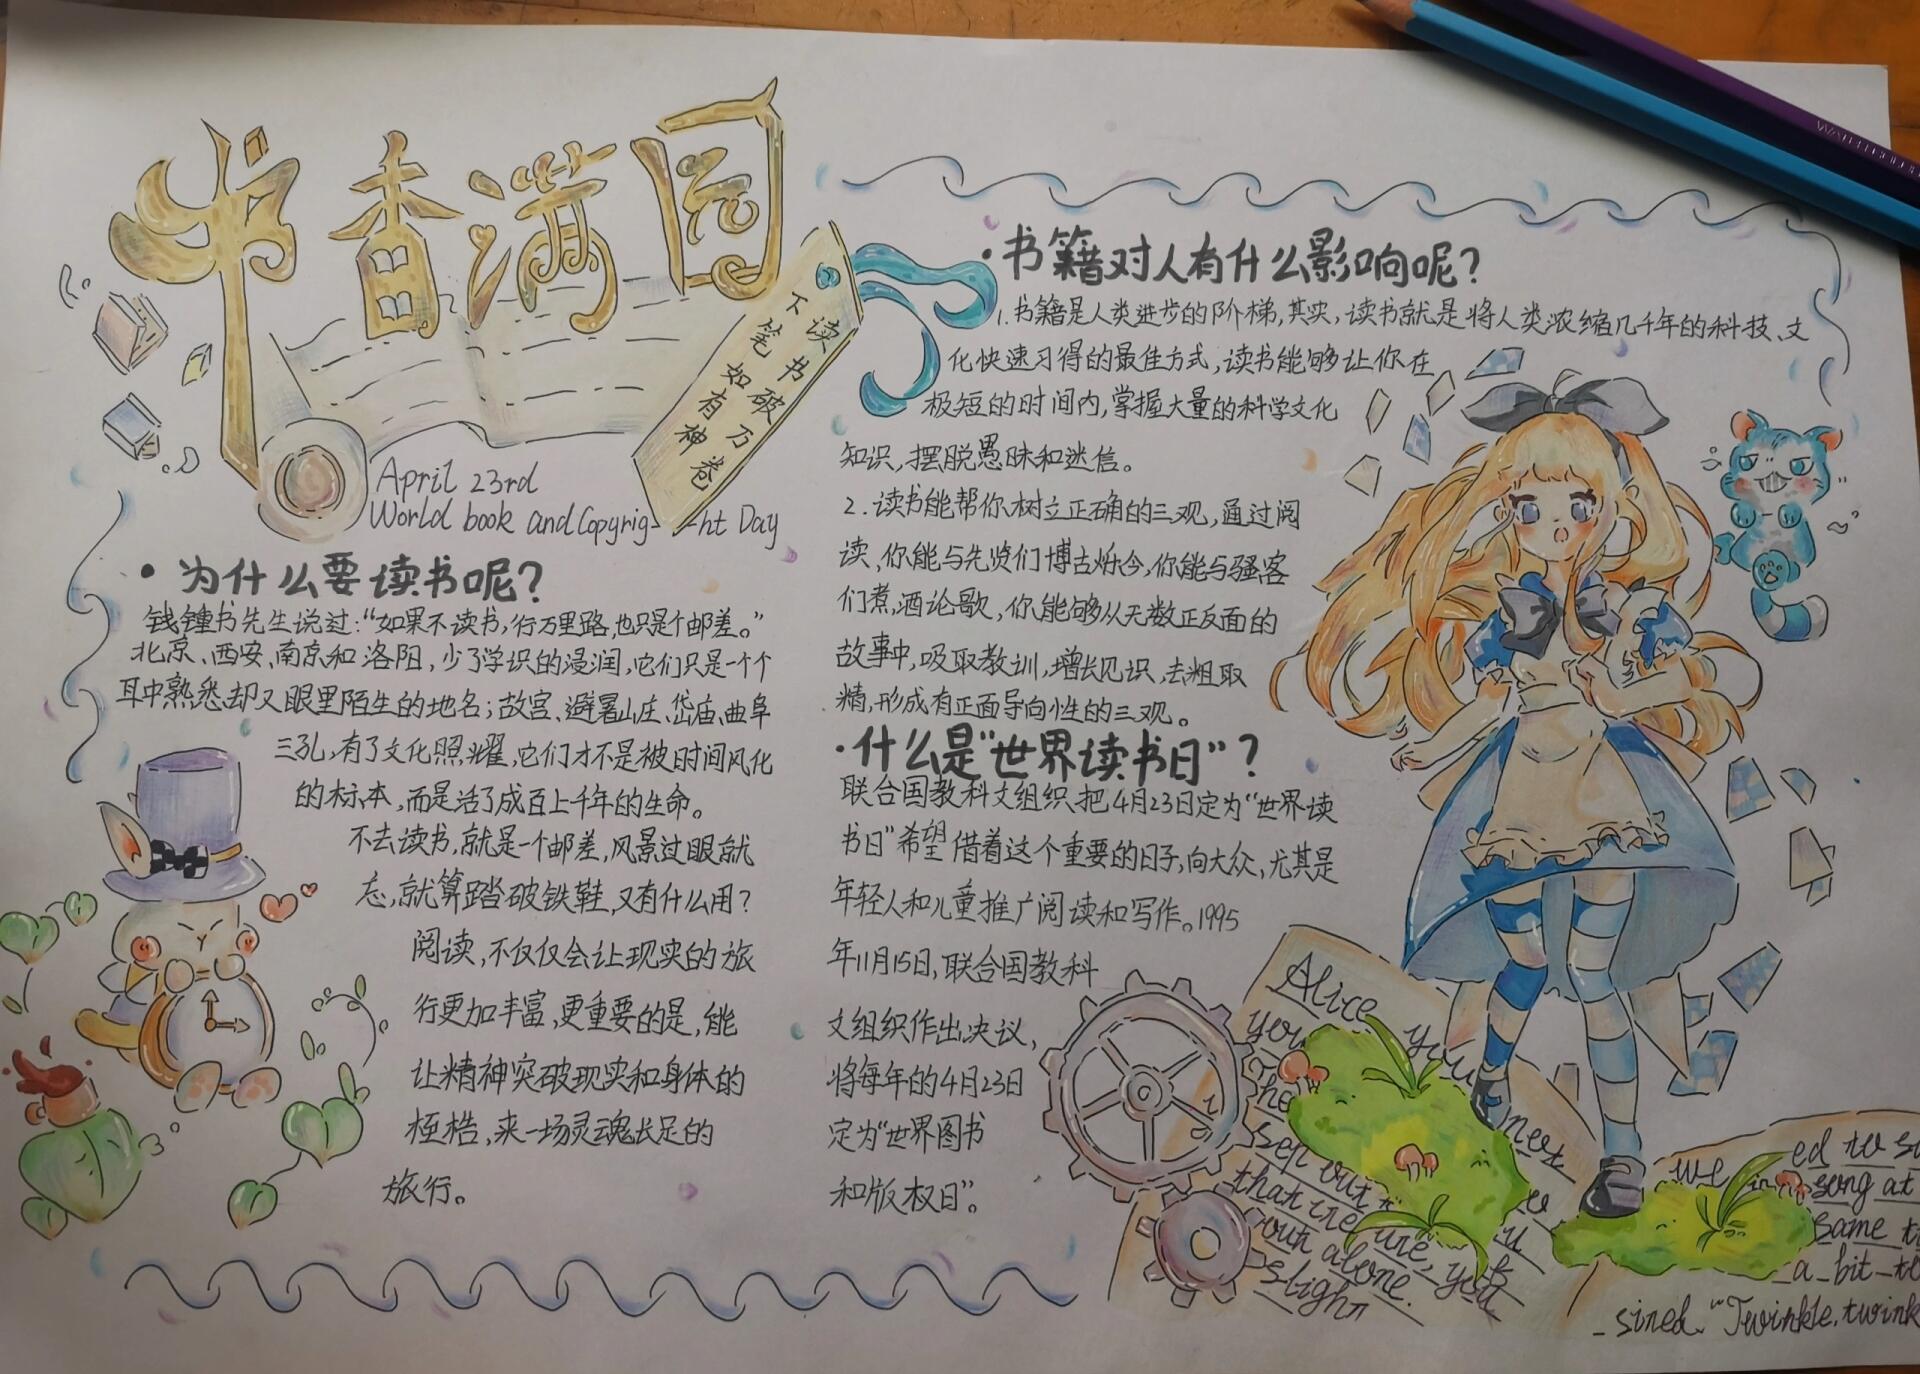 书香满园
读书破万卷
下笔如有神
April 23rd
World book and Copyrig- -ht Day
·为什么要读书呢?
钱锺书先生说过:“如果不读书,行万里路,也只是个邮差。”
北京、西安、南京和洛阳,少了学识的浸润,它们只是一个个
耳中熟悉却又眼里陌生的地名;故宫、避暑山庄、岱庙、曲阜
三孔,有了文化照耀,它们才不是被时间风化
的标本,而是活了成百上千年的生命。
不去读书,就是一个邮差,风景过眼就
忘,就算踏破铁鞋,又有什么用?
阅读,不仅仅会让现实的旅
行更加丰富,更重要的是,能
让精神突破现实和身体的
桎梏,来一场灵魂长足的
旅行。
·书籍对人有什么影响呢?
1.书籍是人类进步的阶梯,其实,读书就是将人类浓缩几千年的科技、文
化快速习得的最佳方式,读书能够让你在
极短的时间内,掌握大量的科学文化
知识,摆脱愚昧和迷信。
2.读书能帮你树立正确的三观,通过阅
读、你能与先贤们博古烁今,你能与骚客
们煮酒论歌,你能够从无数正反面的
故事中,吸取教训,增长见识,去粗取
精,形成有正面导向性的三观。
·什么是“世界读书日”?
联合国教科文组织、把4月23日定为“世界读
书日”希望借着这个重要的日子,向大众,尤其是
年轻人和儿童推广阅读和写作。1995
年11月15日,联合国教科
文组织作出决议,
将每年的4月23日
定为“世界图书
和版权日”。
Alice
you you
The
that the
your alone.
sligh
we
ed to
song at
same
a bit
sired. “Twinkle, twink